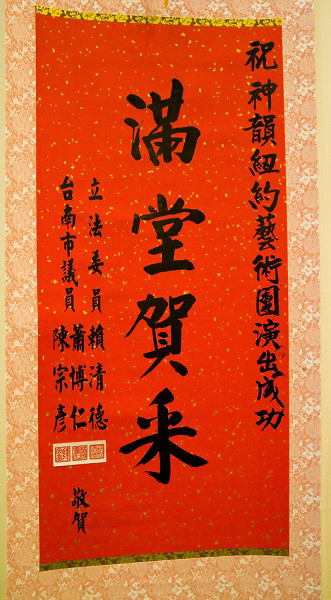 祝神韻紐約藝術團演出成功
滿堂賀采
立法委員賴清德
台南市議員蕭博仁
陳宗彥
敬賀